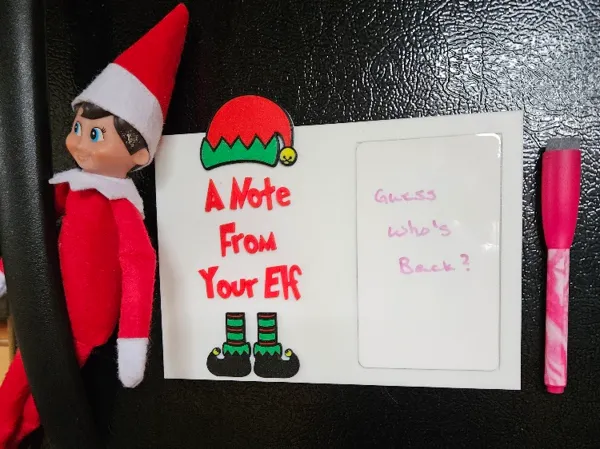 A Note
From
Your Elf
Guess
Who's
Back?